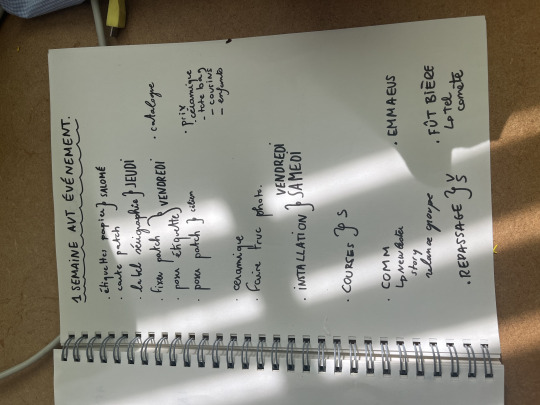 1 SEMAINE AVT ÉVÉNEMENT.
. étiquettes papier } SALOMÉ
. carte patch
. label sérigraphie } JEUDI
. fixer patch } VENDREDI
. poser étiquette
. poser patch }
. céramique
. faire truc photo.
. INTALLATION } VENDREDI
SAMEDI
. COURSES } S
. COMM
↳ newsletter
story
relance groupe
. REPASSAGE } V
S
. catalogue
. prix
↳ céramique
- tote bag
- cousins
- enfants
. EMMAEUS
. FÛT BIÈRE
↳ tel
comète